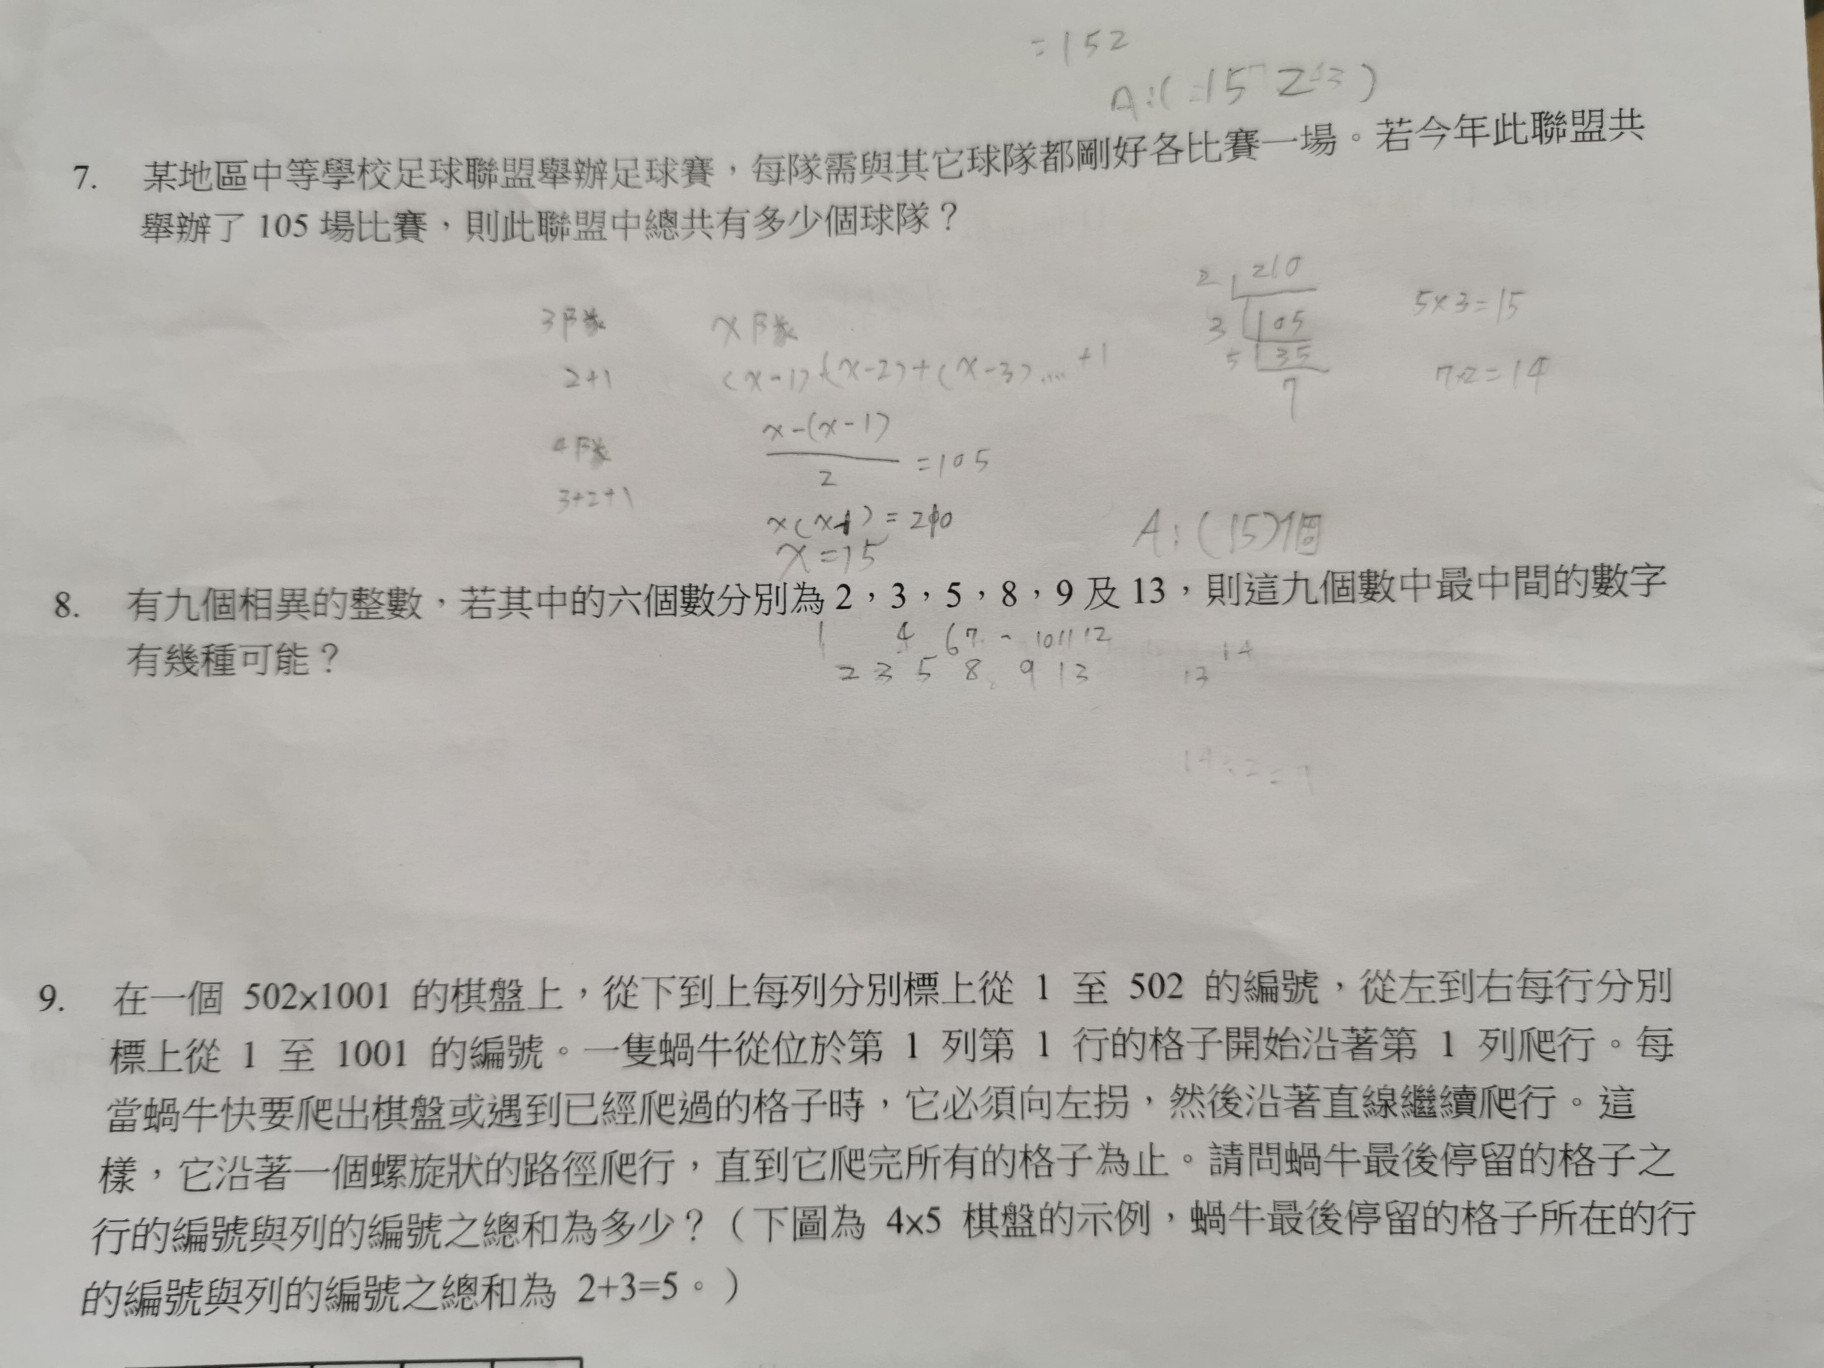 =152
7. 某地區中等學校足球聯盟舉辦足球賽，每隊需與其它球隊都剛好各比賽一場。若今年此聯盟共
舉辦了 105 場比賽，則此聯盟中總共有多少個球隊？
3隊 x隊
2+1 (x-1)+(x-2)+(x-3)....+1
4隊
3+2+1
x-(x-1)
2
=105
x(x-1)=210
x=15
2 210
3 105
5 35
7
5×3=15
7×2=14
A:(15)個
8. 有九個相異的整數，若其中的六個數分別為 2，3，5，8，9 及 13，則這九個數中最中間的數字
有幾種可能？
1 4 67 - 10 11 12
2 3 5 8 9 13
13 14
14÷2=7
9. 在一個 502x1001 的棋盤上，從下到上每列分別標上從 1 至 502 的編號，從左到右每行分別
標上從 1 至 1001 的編號。一隻蝸牛從位於第 1 列第 1 行的格子開始沿著第 1 列爬行。每
當蝸牛快要爬出棋盤或遇到已經爬過的格子時，它必須向左拐，然後沿著直線繼續爬行。這
樣，它沿著一個螺旋狀的路徑爬行，直到它爬完所有的格子為止。請問蝸牛最後停留的格子之
行的編號與列的編號之總和為多少？（下圖為 4x5 棋盤的示例，蝸牛最後停留的格子所在的行
的編號與列的編號之總和為 2+3=5。）